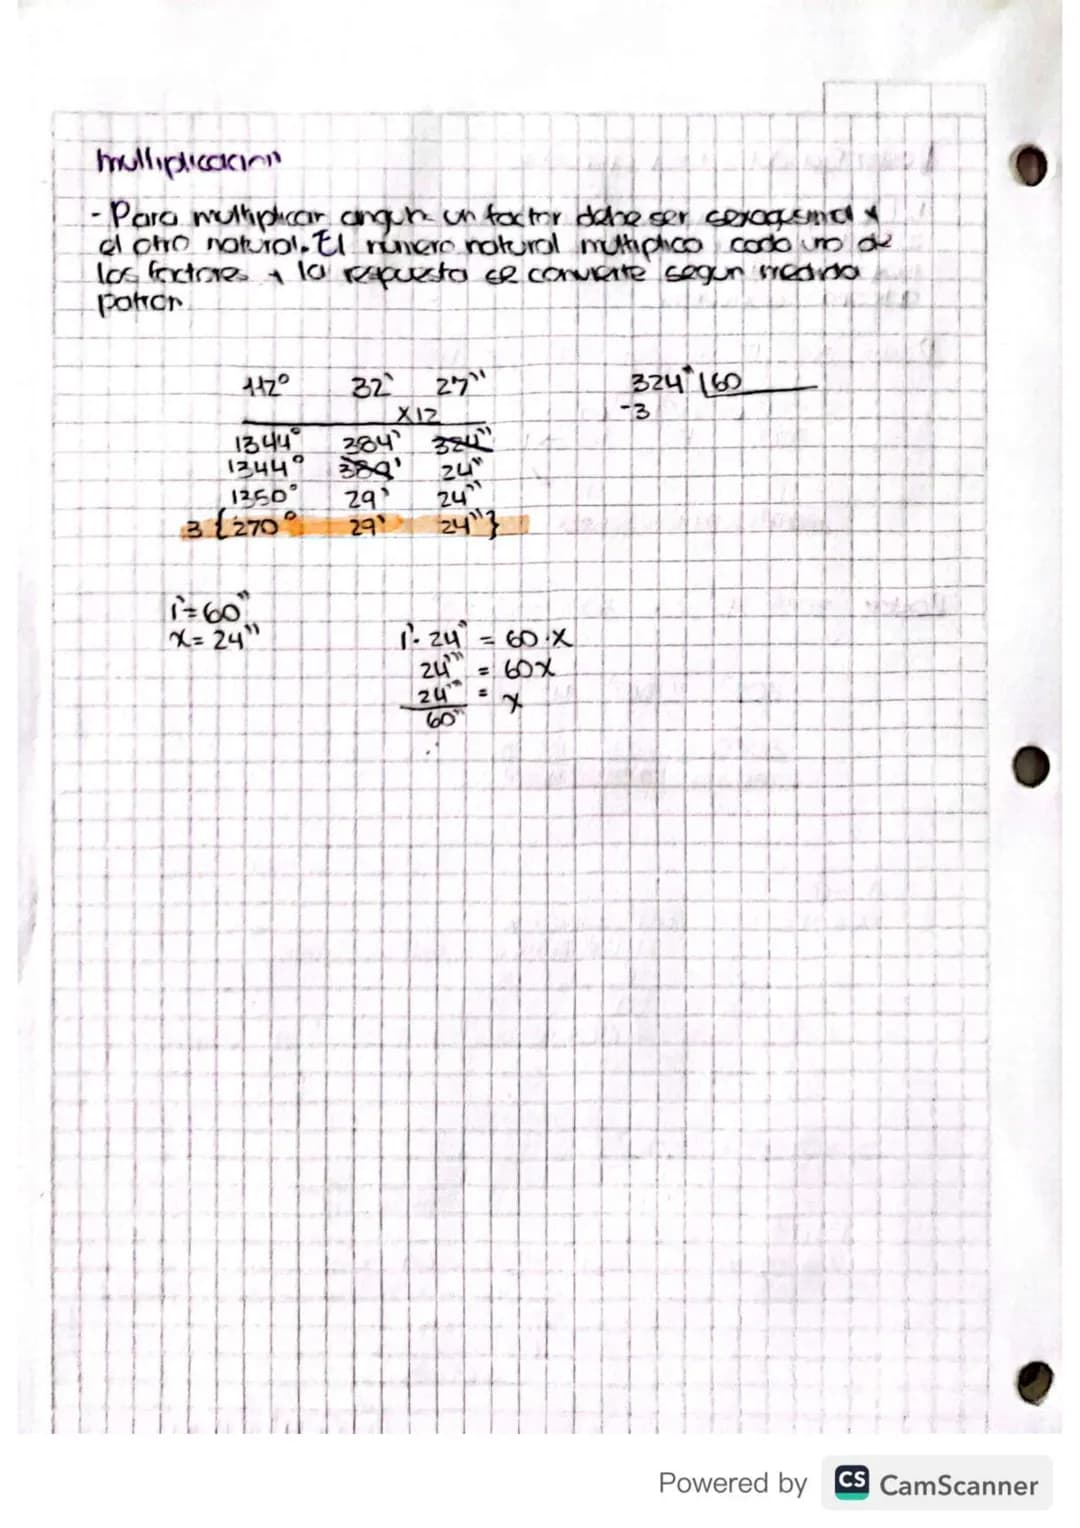 multiplicacion
- Para multiplicar angulo un factor debe ser sexagesimal y
el otro natural. El número natural multiplica cada uno de
los factores y la respuesta se convierte segun medida
patron
112° 32' 27''
X12
1344° 384' 324''
1344° 389' 24''
1350° 29' 24''
3 {270° 29' 24''}
324'' 60
-3
1'= 60''
x= 24''
1'· 24'' = 60·x
24''' = 60x
24''' = x
60''
Powered by CS CamScanner